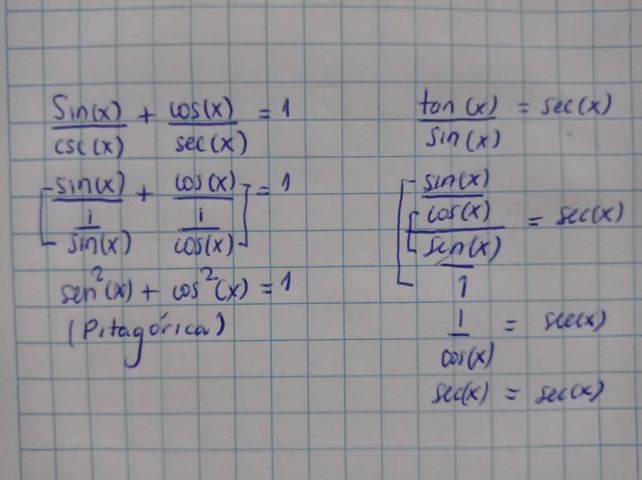 Sin(x)/csc(x) + cos(x)/sec(x) = 1
sin(x)/(1/sin(x)) + cos(x)/(1/cos(x)) = 1
sen²(x) + cos²(x) = 1
(Pitagórica)
tan(x)/sin(x) = sec(x)
(sin(x)/cos(x))/(sen(x)/1) = sec(x)
1/cos(x) = sec(x)
sec(x) = sec(x)